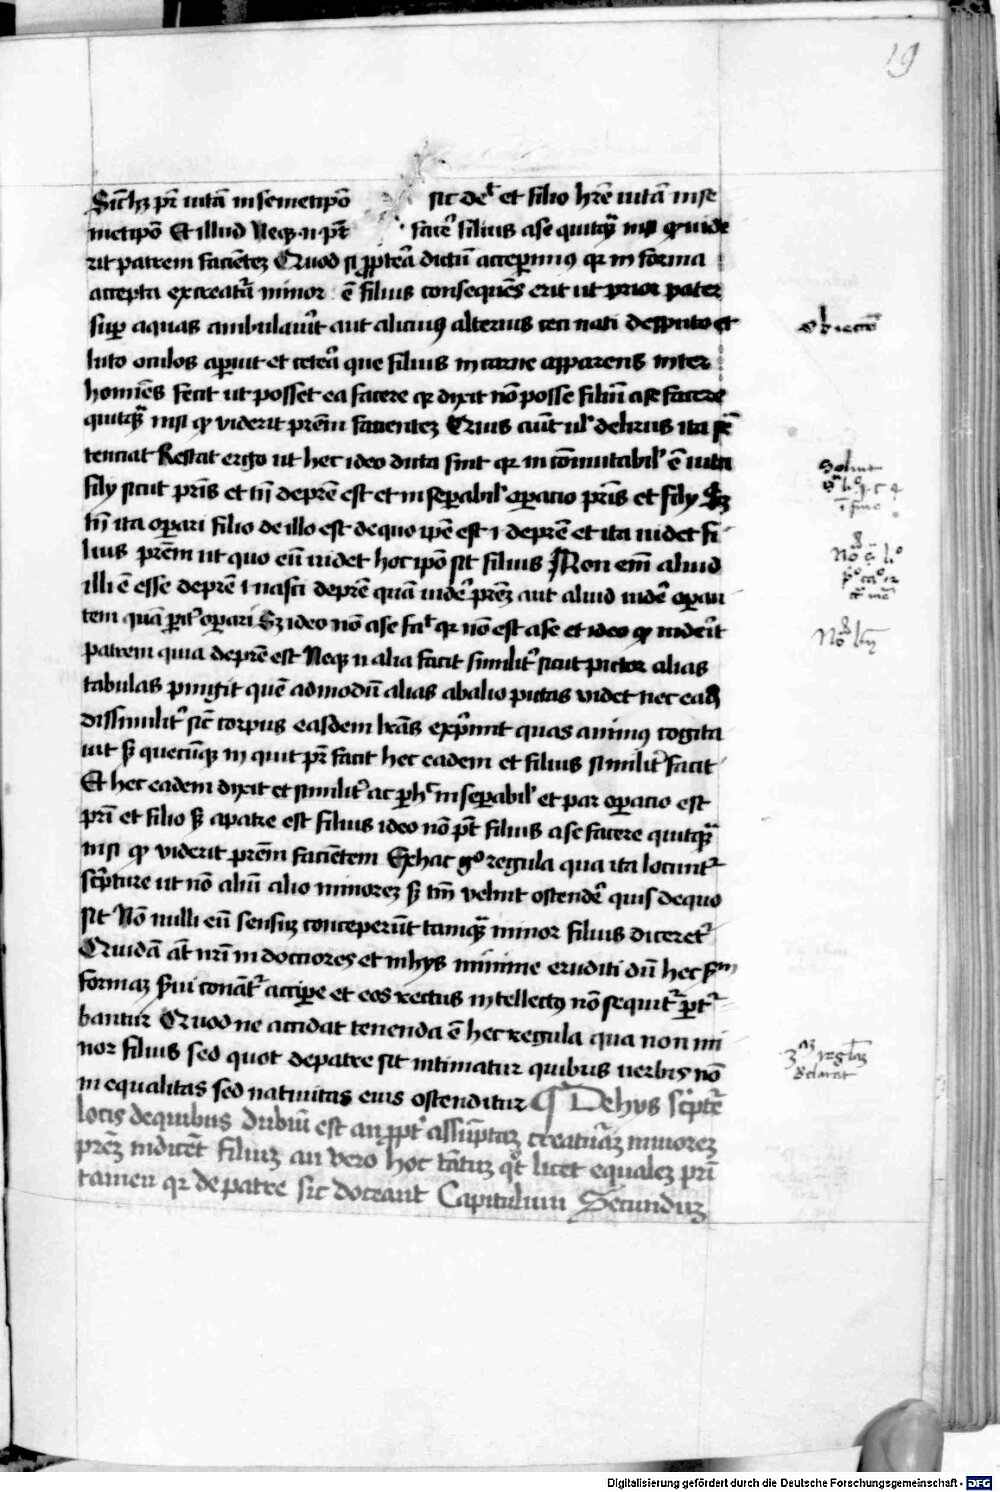 19
Sic̄ hʒ pr̄ uitā in semetip̄o sic det̄ et filio hr̄e uitā in se
metip̄o Et illud Neqꝫ n̄ pt̄ facer̄ filius a se quicq̄ꝫ nisi qd̄ uide
rit patrem faciēteʒ Quod si ꝓpterea dictū acceperimꝯ qꝛ in forma
accepta ex creatā minor ē filius consequēs erit ut prior pater
suꝑ aquas ambulauīt aut alicuiꝯ alterius ceci nati desputo et
luto oculos apuit et cetera que filius in carne apparens inter
homiēs fecit ut posset ea facere qꝛ dixit nō posse filiū a se facere
quicq̄ꝫ nisi qd̄ viderit prēm facienteʒ Quis aūt ul̄ delirus ita sē
tenciat Restat ergo ut hec ideo dicta sint qꝛ incōmutabil̄ ē uita
fily sicut pris̄ et tn̄ de prē est et inseꝑabil̄ oꝑacio pris̄ et fily Sʒ
tn̄ ita oꝑari filio de illo est de quo ip̄e est ⁊ de prē et ita uidet fi
lius prēm ut quo eū uidet hoc ip̄o sit filius Non em̄ aliud
illi ē esse de prē ⁊ nasci de prē quā uidēr prēʒ aut aliud uidēr oꝑan
tem quā parit̄ oꝑari Sʒ ideo nō a se fac̄ qꝛ nō est a se et ideo qd̄ uiderit
patrem quia de prē est Neqꝫ n̄ alia facit similit̄ sicut pictor alias
tabulas pingit quē admodū alias ab alio pictas videt nec eadē
dissimilit̄ sic̄ corpus easdem lr̄as exprimit quas animꝯ cogita
uit sʒ quecūqꝫ inquit pr̄ facit hec eadem et filius similit̄ facit
Et hec eadem dixit et similit̄ ac ꝑ hͨ inseꝑabil̄ et par oꝑacio est
pri et filio sʒ a patre est filius ideo nō pt̄ filius a se facere quicq̄ꝫ
nisi qd̄ viderit prēm facientem Ex hac gͦ regula qua ita locunt̄
scpture ut nō aliū alio minoreʒ sʒ tm̄ velint ostendēr quis de quo
sit Nō nulli eū sensuʒ conceperūt tamqꝫ minor filius diceret̄
Quidā aūt nr̄i indocciores et in hys minime eruditi dū hec sm̄
formaʒ s̄ui conāt̄ accipe et eos rectus intellectꝯ nō sequit̄ ꝑt̄
bantur Quod ne accidat tenenda ē hec regula qua non mi
nor filius sed quot de patre sit intimatur quibus uerbis nō
inequalitas sed natiuitas eius ostenditur De hys scpture
locis de quibus dubiū est an ꝓpt̄ assumptaʒ creaturaʒ minoreʒ
prēʒ indicēt filiuʒ an vero hoc tātuʒ qd̄ licet equaleʒ pri
tamen qꝛ de patre sit doceant Capitulum Secunduʒ
obiectō
Soluit
Digitalisierung gefördert durch die Deutsche Forschungsgemeinschaft - DFG